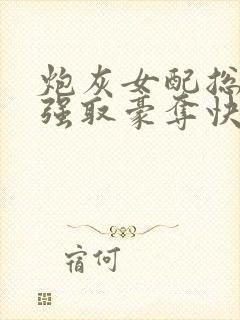 炮灰女配总
强取豪夺快
宿何